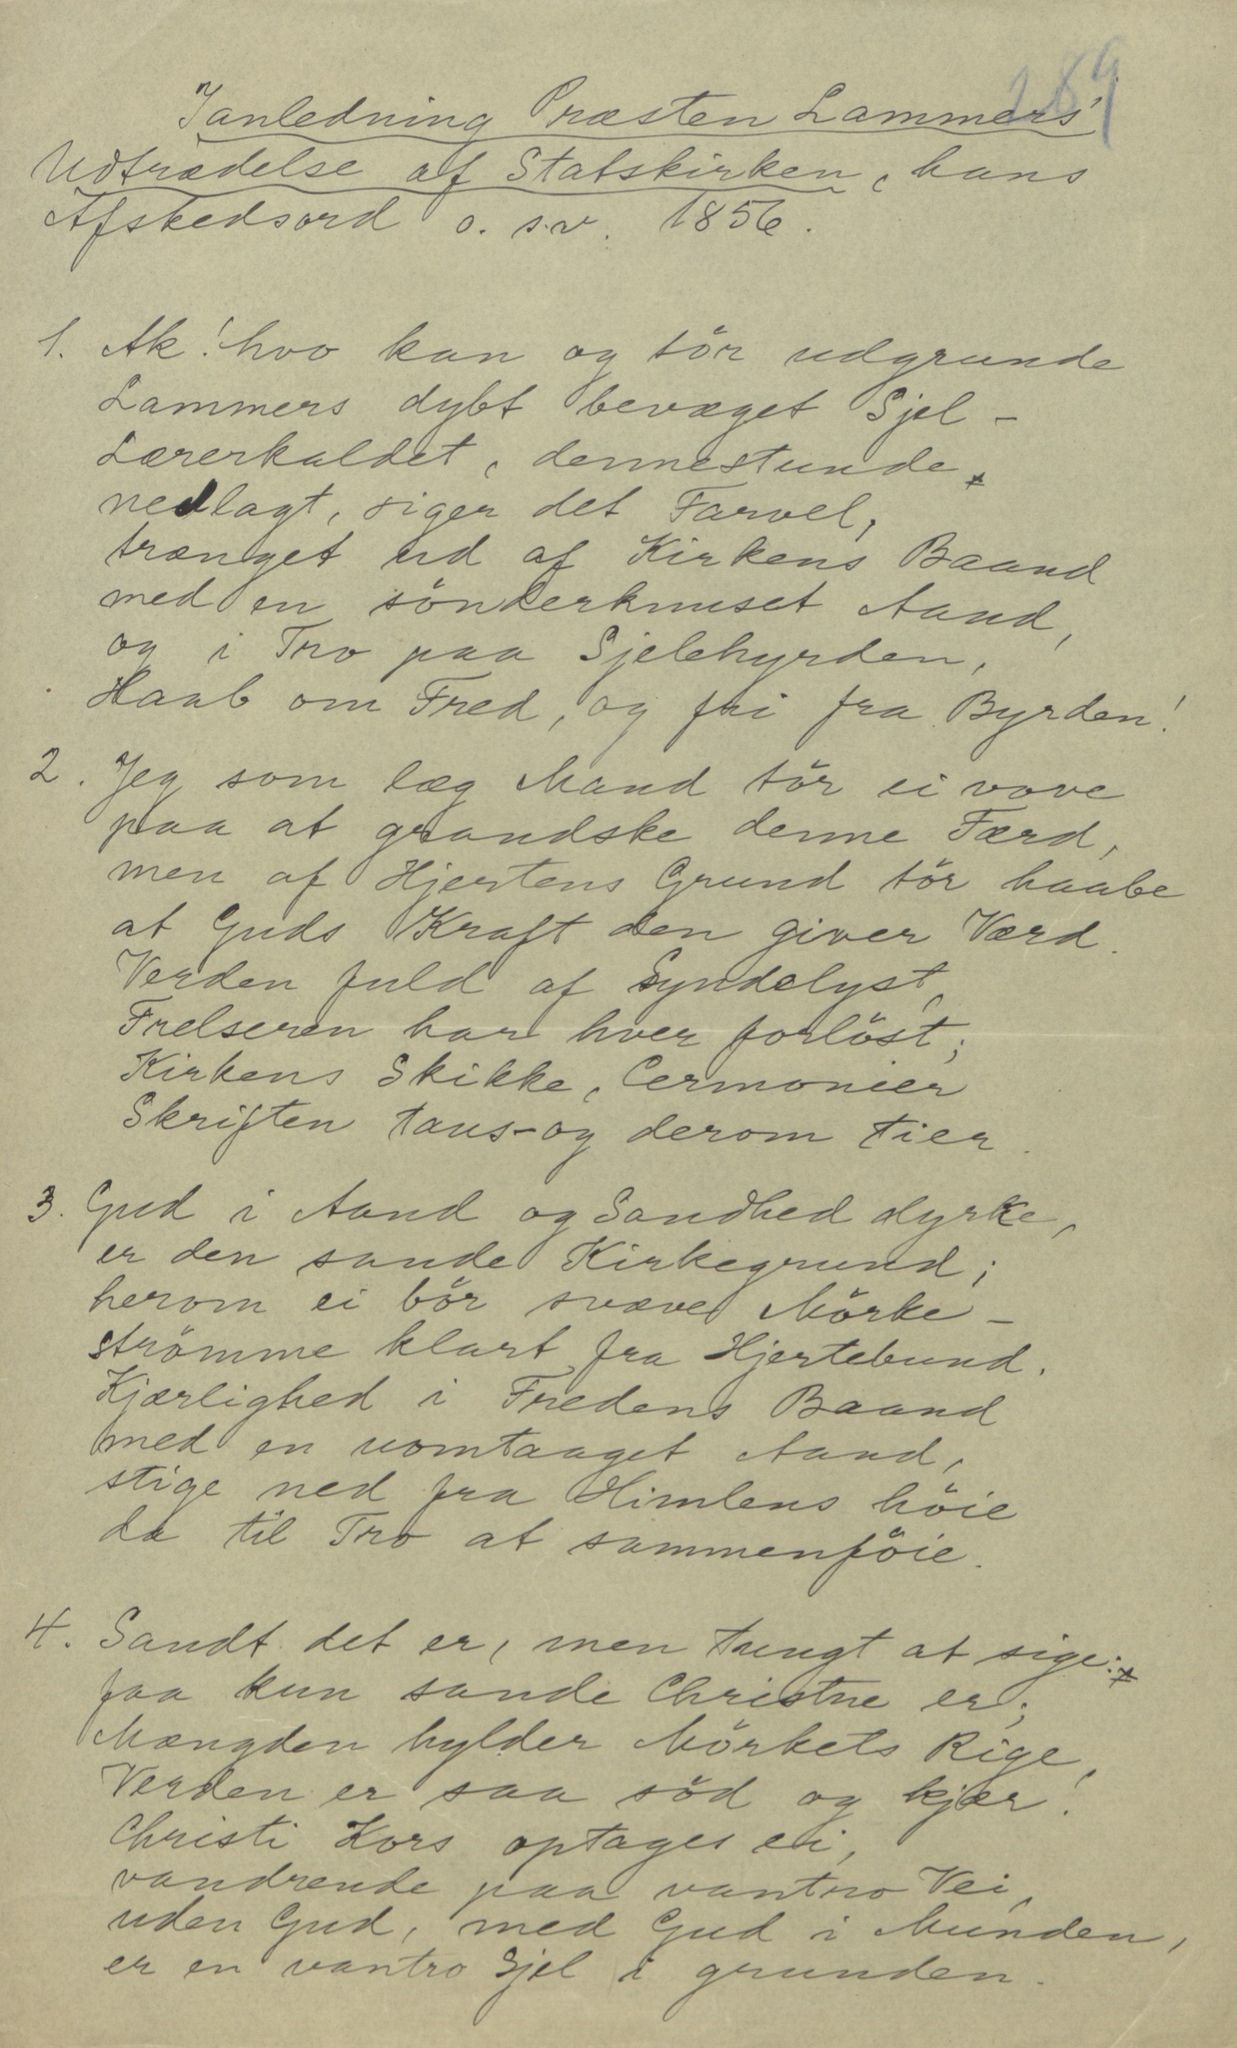 289
Ianledning Præsten Lammers'
Udtrædelse af Statskirken, hans
Afskedsord o. s.v. 1856.
1. Ak! hvo kan og tör udgrunde
Lammers dybt bevæget Sjel -
Lærerkaldet, dennestunde
nedlagt, siger det Farvel,
trænget ud af Kirkens Baand
med en sönderknuset Aand,
og i Tro paa Sjelehyrden,
Haab om Fred, og fri fra Byrden!
2. Jeg som læg Mand tör ei vove
paa at grandske denne Færd,
men af Hjertens Grund tör haabe
at Guds Kraft den giver Værd.
Verden fuld af Syndelyst,
Frelseren har hver forlöst;
Kirkens Skikke, Cermonier
Skriften taus-og derom tier.
3. Gud i Aand og Sandhed dyrke,
er den sande Kirkegrund;
herom ei bör svæve Mörke -
strömme klart fra Hjertebund.
Kjærlighed i Fredens Baand
med en uomtaaget Aand,
stige ned fra Himlens höie
da til Tro at sammenföie.
4. Sandt det er, men tungt at sige:
faa kun sande Christne er;
Mængden hylder Mörkets Rige,
Verden er saa söd og kjær!
Christi Kors optages ei,
vandrende paa vantro Vei,
uden Gud, med Gud i Munden,
er en vantro Sjel i grunden.